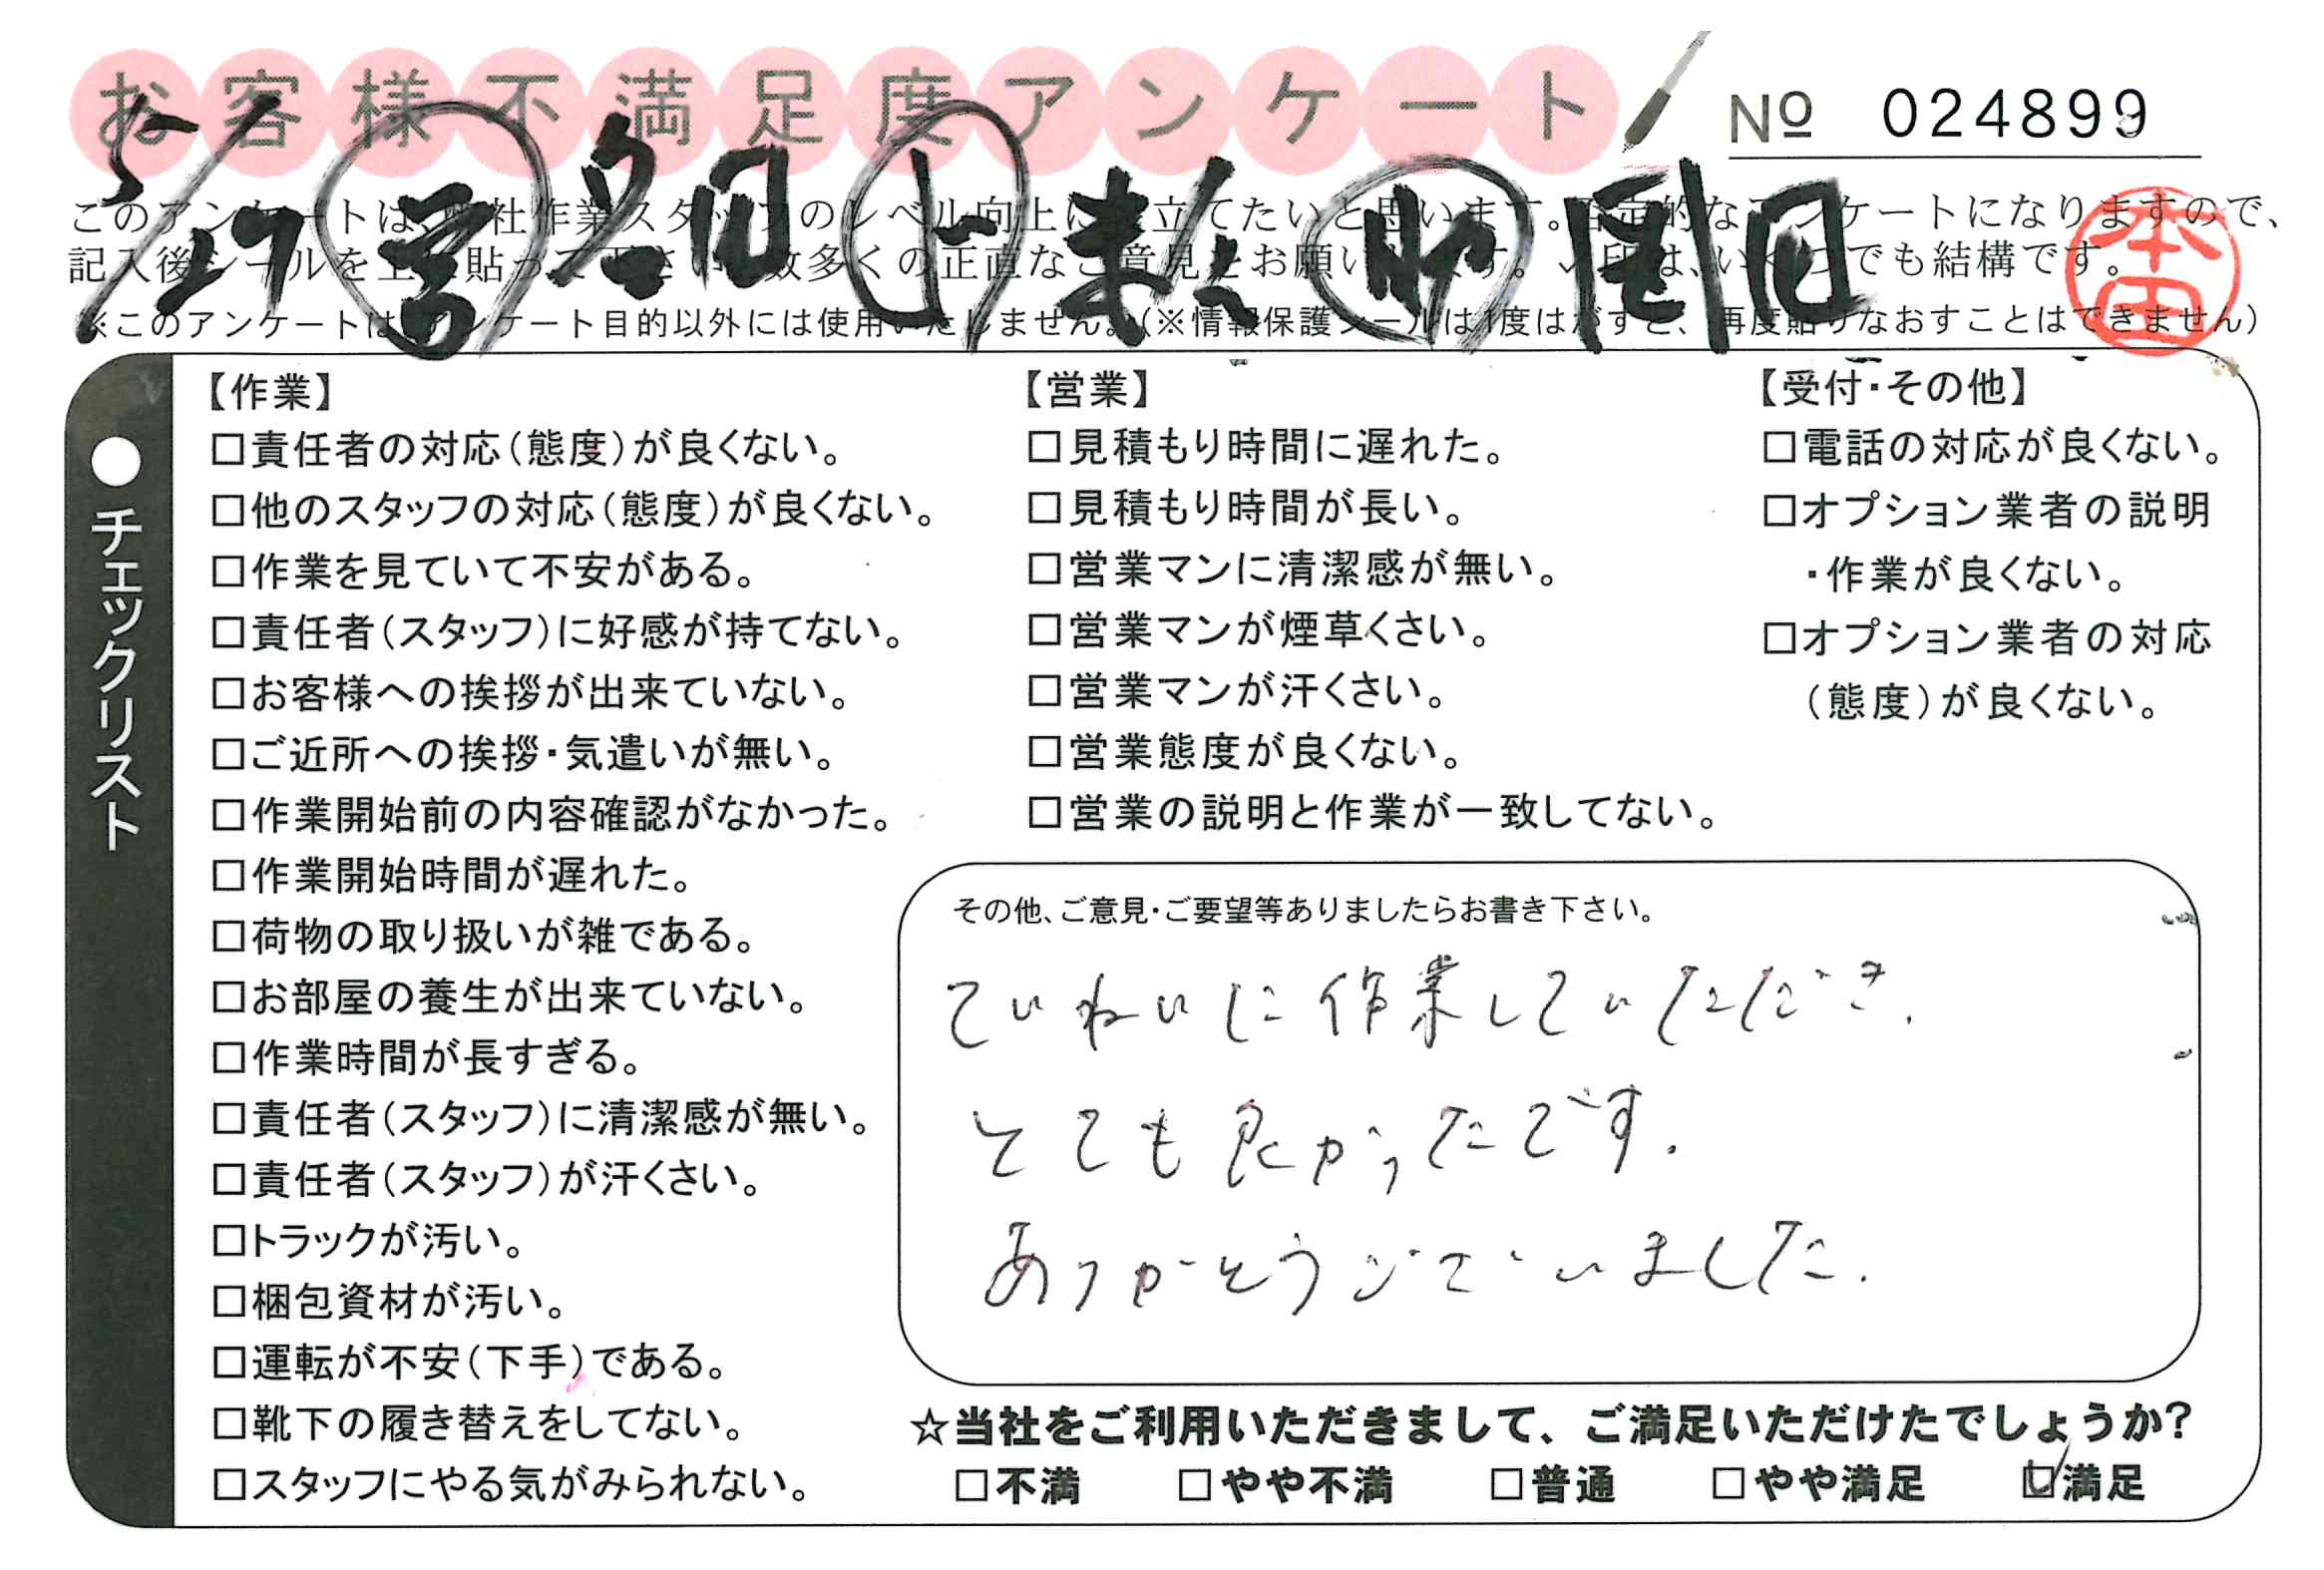 お客様不満足度アンケート
№ 024899
5/27 営 下 助
このアンケートは、社作業スタッフのレベル向上に立てたいと思います。否定的なアンケートになりますので、
記入後シールを上に貼って下さい。数多くの正直なご意見をお願いします。✓印は、いくつでも結構です。
※このアンケートは、アンケート目的以外には使用いたしません。(※情報保護シールは1度はがすと、再度貼りなおすことはできません)
本田
●チェックリスト
【作業】
□責任者の対応(態度)が良くない。
□他のスタッフの対応(態度)が良くない。
□作業を見ていて不安がある。
□責任者(スタッフ)に好感が持てない。
□お客様への挨拶が出来ていない。
□ご近所への挨拶・気遣いが無い。
□作業開始前の内容確認がなかった。
□作業開始時間が遅れた。
□荷物の取り扱いが雑である。
□お部屋の養生が出来ていない。
□作業時間が長すぎる。
□責任者(スタッフ)に清潔感が無い。
□責任者(スタッフ)が汗くさい。
□トラックが汚い。
□梱包資材が汚い。
□運転が不安(下手)である。
□靴下の履き替えをしてない。
□スタッフにやる気がみられない。
【営業】
□見積もり時間に遅れた。
□見積もり時間が長い。
□営業マンに清潔感が無い。
□営業マンが煙草くさい。
□営業マンが汗くさい。
□営業態度が良くない。
□営業の説明と作業が一致してない。
【受付・その他】
□電話の対応が良くない。
□オプション業者の説明
・作業が良くない。
□オプション業者の対応
(態度)が良くない。
その他、ご意見・ご要望等ありましたらお書き下さい。
ていねいに作業していただき、
とても良かったです。
ありがとうございました。
☆当社をご利用いただきまして、ご満足いただけたでしょうか?
□不満 □やや不満 □普通 □やや満足 ☑満足